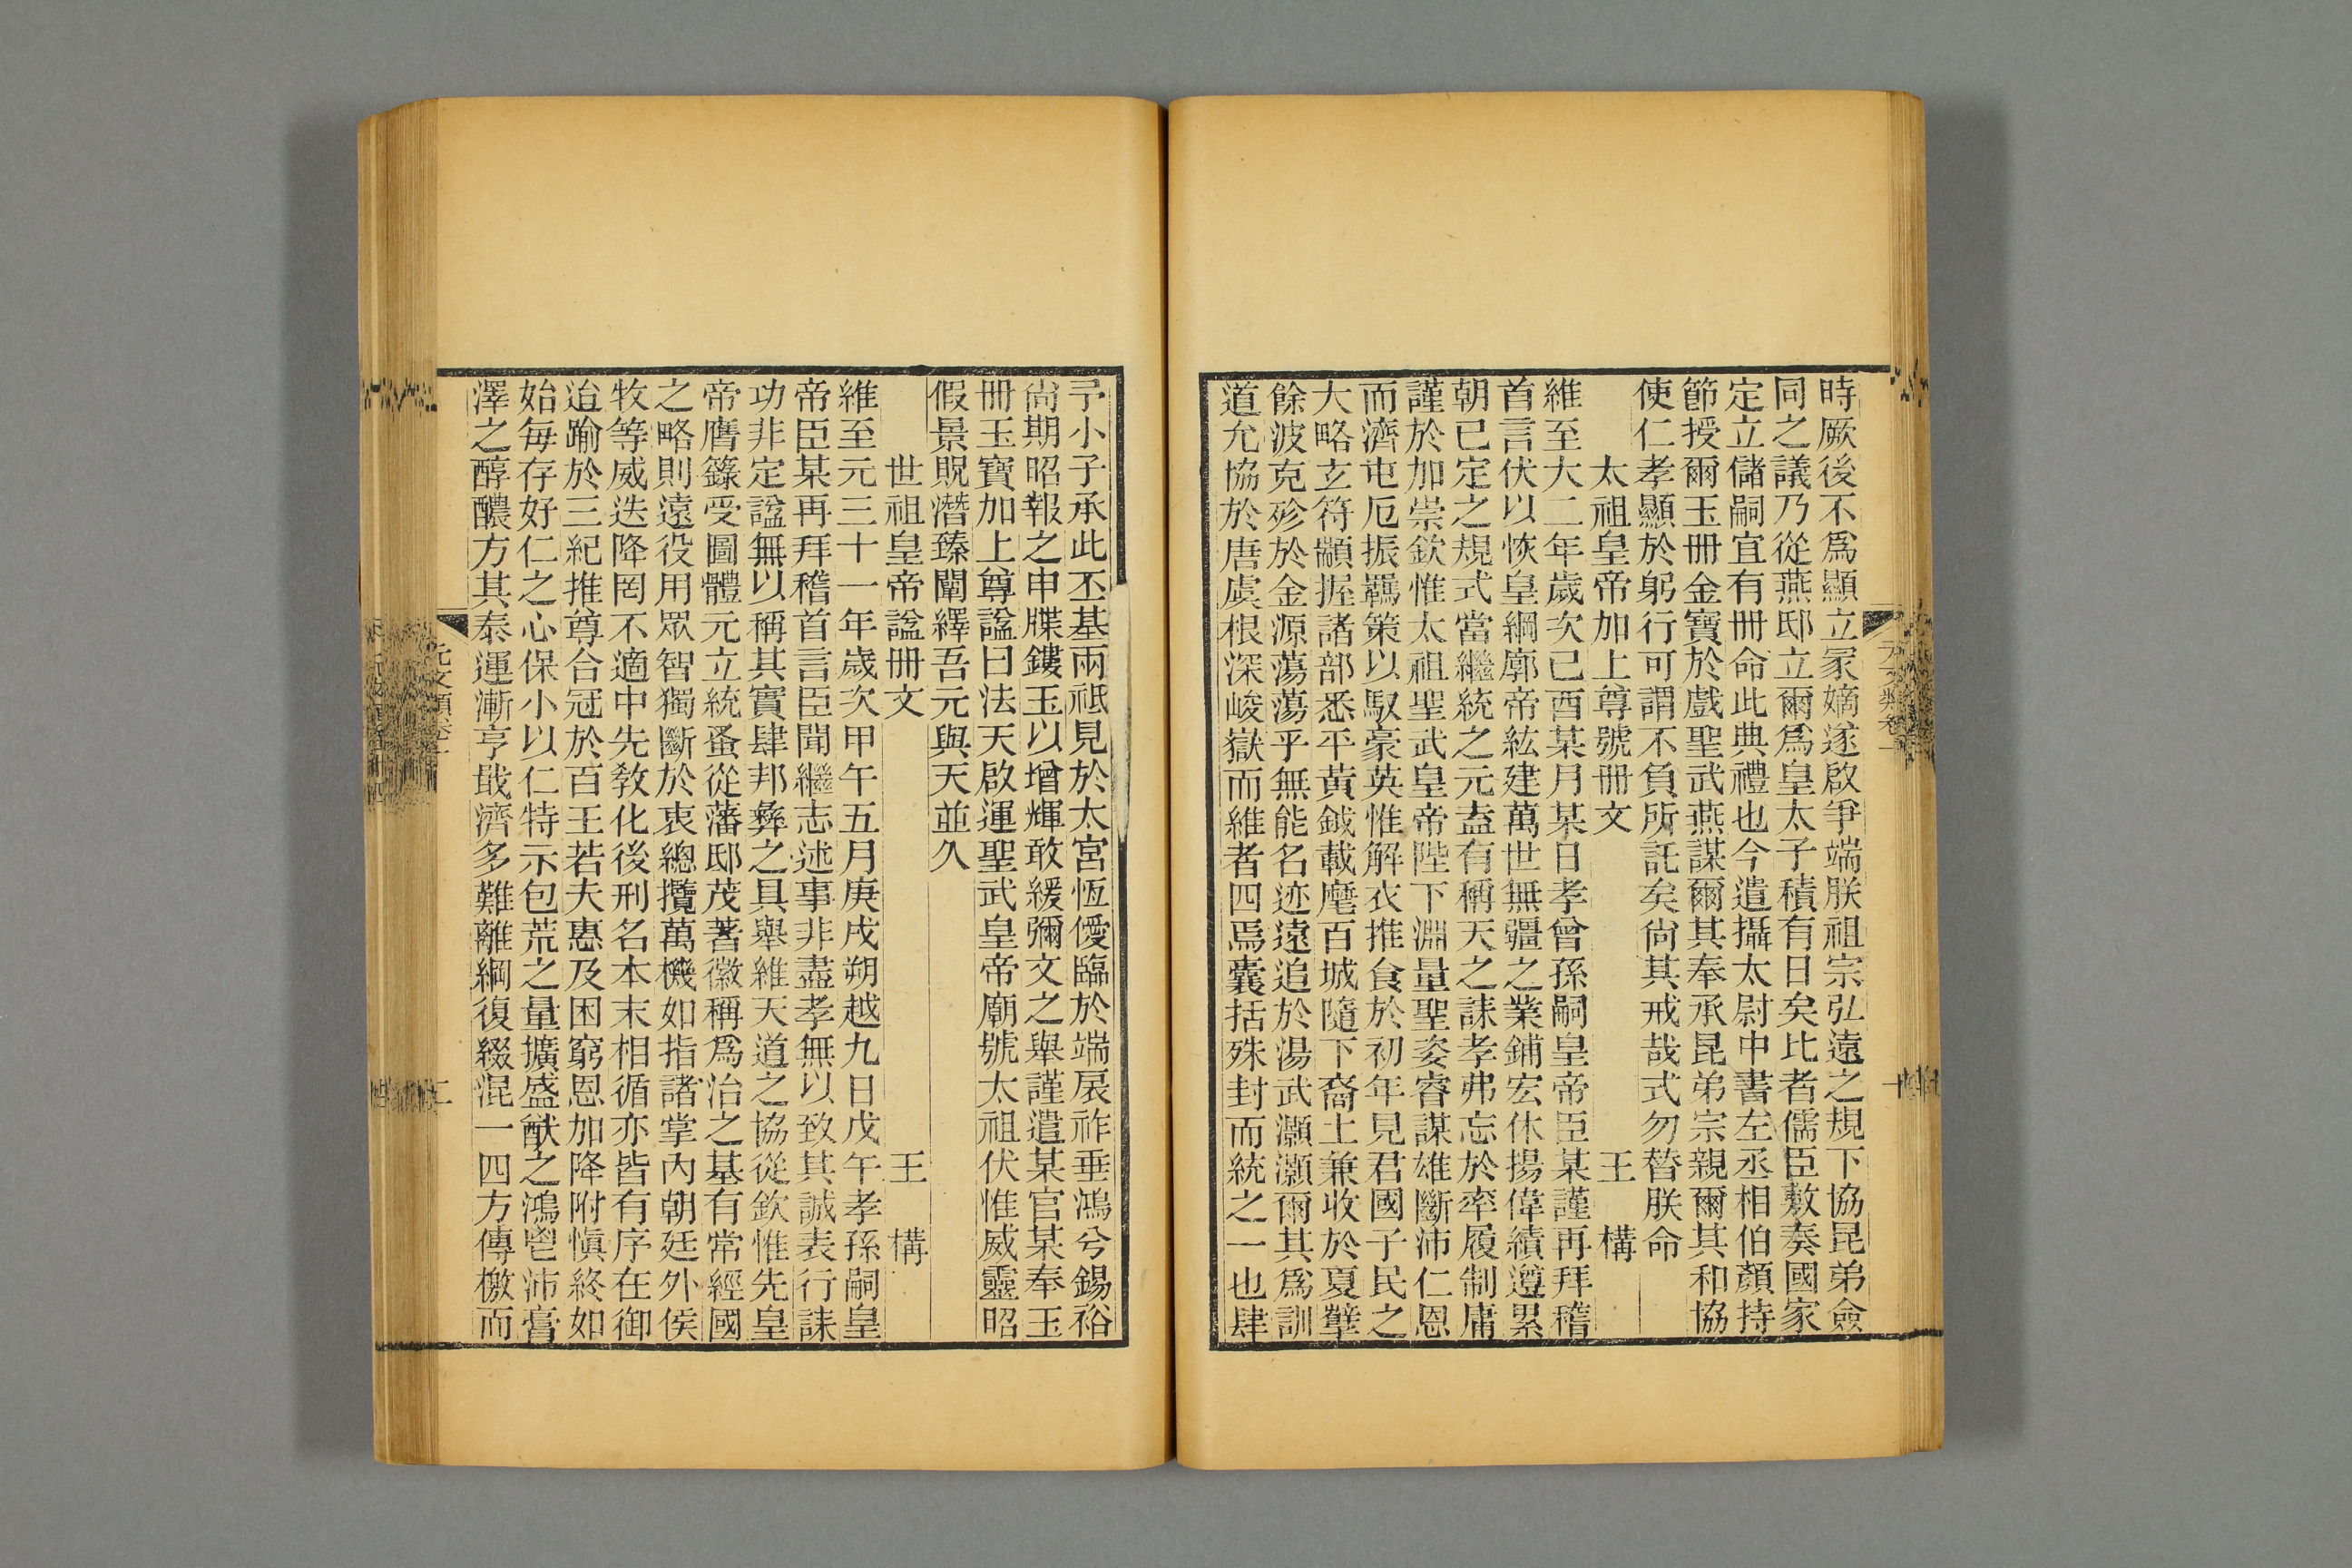 時厥後不爲顯立冡嫡遂啟爭端朕祖宗弘遠之規下協昆弟僉
同之議乃從燕邸立爾爲皇太子積有日矣比者儒臣敷奏國家
定立儲嗣宜有冊命此典禮也今遣攝太尉中書左丞相伯顏持
節授爾玉冊金寶於戲聖武燕謀爾其奉承昆弟宗親爾其和協
使仁孝顯於躬行可謂不負所託矣尙其戒哉式勿替朕命
太祖皇帝加上尊號冊文 王 構
維至大二年歲次己酉某月某日孝曾孫嗣皇帝臣某謹再拜稽
首言伏以恢皇綱廓帝紘建萬世無疆之業鋪宏休揚偉績遵累
朝已定之規式當繼統之元葢有稱天之誄孝弗忘於率履制庸
謹於加崇欽惟太祖聖武皇帝陛下淵量聖姿睿謀雄斷沛仁恩
而濟屯厄振羈策以馭豪英惟解衣推食於初年見君國子民之
大略玄符顓握諸部悉平黃鉞載麾百城隨下裔土兼收於夏孽
餘波克殄於金源蕩蕩乎無能名迹遠追於湯武灝灝爾其爲訓
道允協於唐虞根深峻嶽而維者四焉囊括殊封而統之一也肆
予小子承此丕基兩祗見於太宮恆僾臨於端扆祚垂鴻兮錫裕
尙期昭報之申牒鏤玉以增輝敢緩彌文之舉謹遣某官某奉玉
冊玉寶加上尊諡曰法天啟運聖武皇帝廟號太祖伏惟威靈昭
假景貺潛臻闡繹吾元與天並久
世祖皇帝諡冊文 王 構
維至元三十一年歲次甲午五月庚戌朔越九日戊午孝孫嗣皇
帝臣某再拜稽首言臣聞繼志述事非盡孝無以致其誠表行誄
功非定諡無以稱其實肆邦彝之具舉維天道之協從欽惟先皇
帝膺籙受圖體元立統蚤從藩邸茂著徽稱爲治之基有常經國
之略則遠役用眾智獨斷於衷總攬萬機如指諸掌內朝廷外侯
牧等威迭降罔不適中先教化後刑名本末相循亦皆有序在御
迨踰於三紀推尊合冠於百王若夫惠及困窮恩加降附愼終如
始每存好仁之心保小以仁特示包荒之量擴盛猷之鴻鬯沛膏
澤之醇醲方其泰運漸亨戢濟多難離綱復綴混一四方傳檄而
元文類卷十